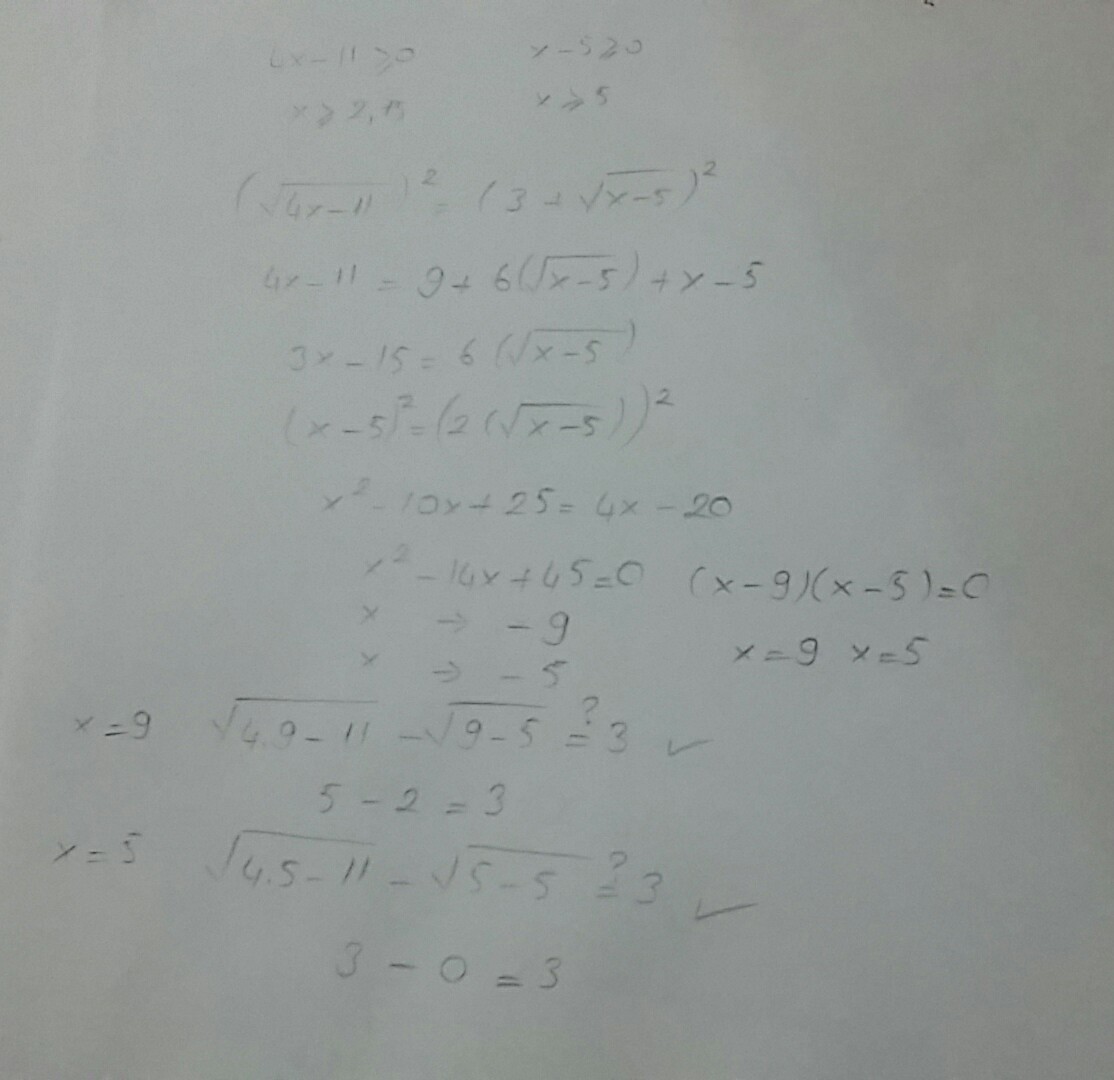 4x-11≥0 x-5≥0
x≥ x≥5
(√(4x-11))² = (3+√(x-5))²
4x-11 = 9+6(√(x-5))+x-5
3x-15 = 6(√(x-5))
(x-5)² = (2(√(x-5)))²
x²-10x+25 = 4x-20
x²-14x+45=0 (x-9)(x-5)=0
x → -9
x → -5 x=9 x=5
x=9 √(4.9-11) - √(9-5) ?= 3 ✓
5-2=3
x=5 √(4.5-11) - √(5-5) ?= 3 ✓
3-0=3